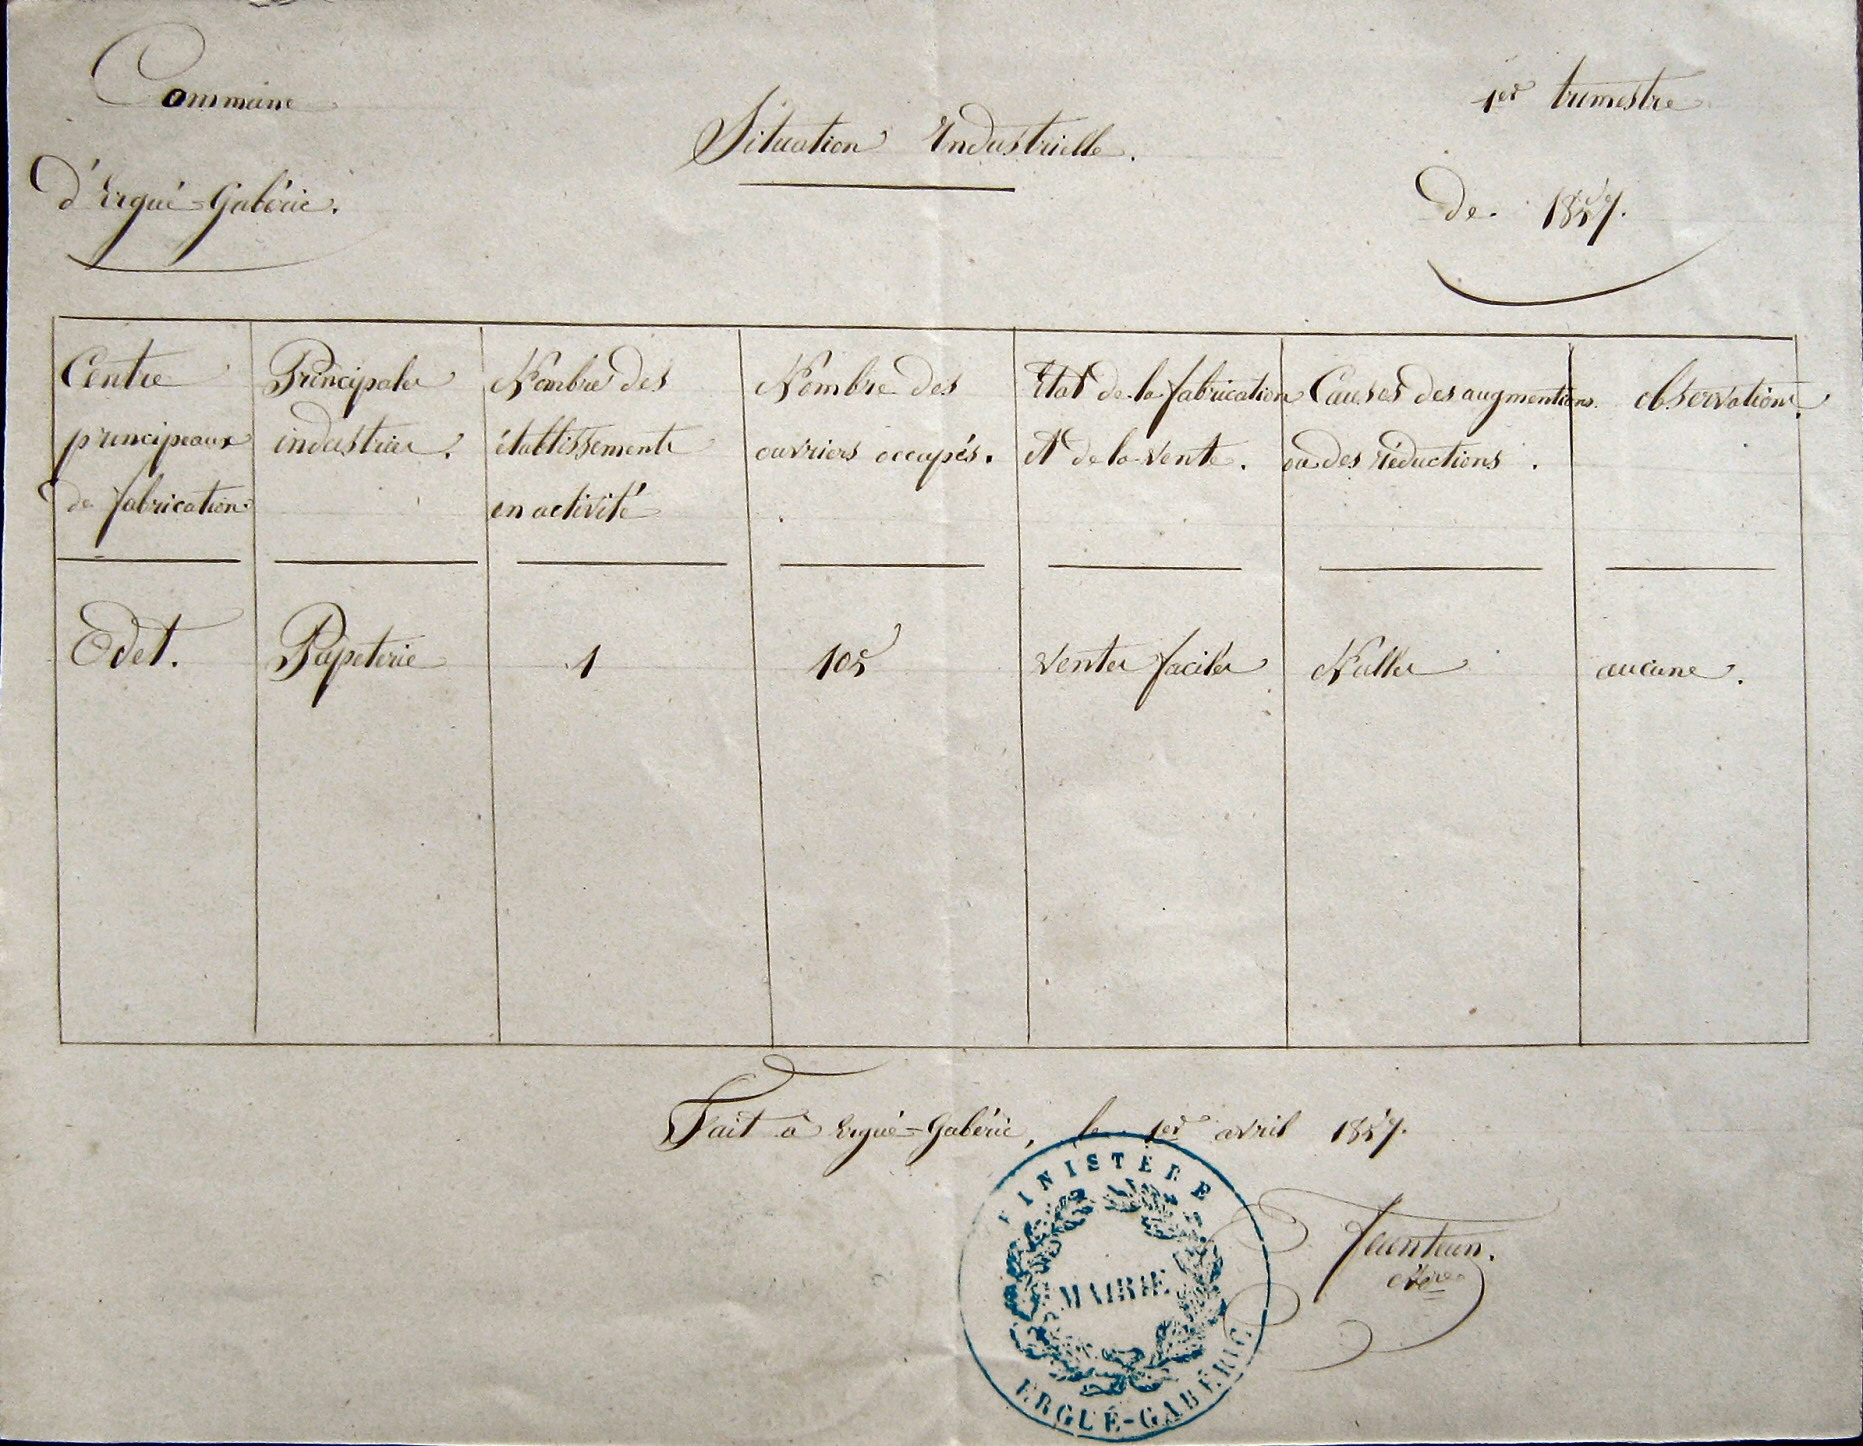 Commune
d'Ergué-Gabéric.
Situation Industrielle.
1er trimestre
de 1857.
Centre
principeaux
de fabrication
Principales
industries.
Nombre des
établissements
en activité
Nombre des
ouvriers occupés.
Etat de la fabrication
et de la vente.
Causes des augmentions
ou des réductions.
observations.
Odet.
Papeterie
1
105
ventes faciles
Nulles
aucune.
Fait à Ergué-Gabéric, le 1er avril 1857.
FINISTÈRE
MAIRIE
ERGUÉ-GABÉRIC